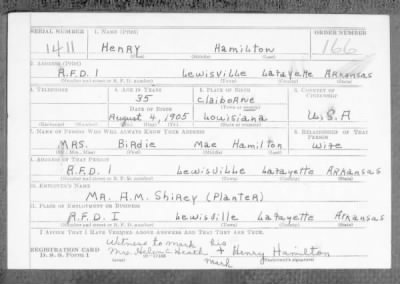 SERIAL NUMBER 1. NAME (Print) ORDER NUMBER
1411 Henry Hamilton 166
(First) (Middle) (Last)
2. ADDRESS (Print)
R.F.D. 1 Lewisville Lafayette Arkansas
(Number and street or R. F. D. number) (Town) (County) (State)
3. TELEPHONE 4. AGE IN YEARS 5. PLACE OF BIRTH 6. COUNTRY OF CITIZENSHIP
35 Claiborne
DATE OF BIRTH (Town or county)
August 4, 1905 Louisiana U.S.A
(Exchange) (Number) (Mo.) (Day) (Yr.) (State or country)
7. NAME OF PERSON WHO WILL ALWAYS KNOW YOUR ADDRESS 8. RELATIONSHIP OF THAT PERSON
Mrs. Birdie Mae Hamilton wife
(Mr., Mrs., Miss) (First) (Middle) (Last)
9. ADDRESS OF THAT PERSON
R.F.D. 1 Lewisville Lafayette Arkansas
(Number and street or R. F. D. number) (Town) (County) (State)
10. EMPLOYER'S NAME
Mr. A.M. Shirey (Planter)
11. PLACE OF EMPLOYMENT OR BUSINESS
R.F.D. I Lewisville Lafayette Arkansas
(Number and street or R. F. D. number) (Town) (County) (State)
I AFFIRM THAT I HAVE VERIFIED ABOVE ANSWERS AND THAT THEY ARE TRUE.
Witness to mark his
REGISTRATION CARD Mrs. Helen C. Heath + Henry Hamilton
D. S. S. Form 1 (over) 16—17105 mark (Registrant's signature)